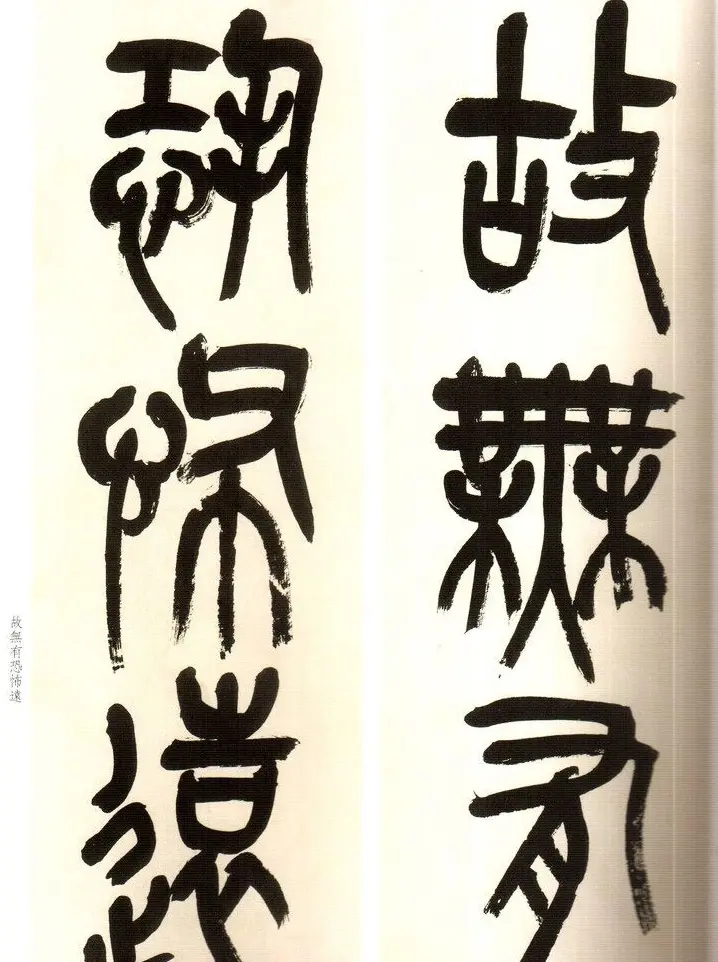 故無有
恐怖遠
故無有恐怖遠